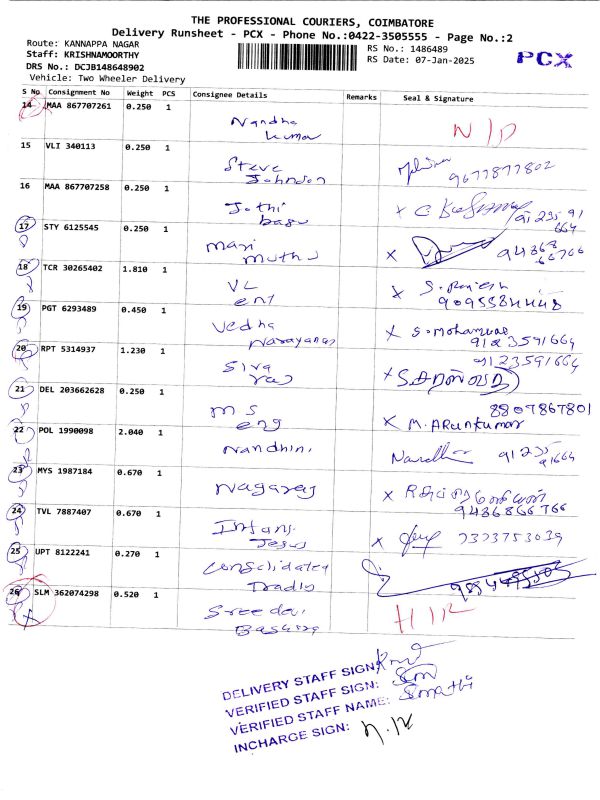 THE PROFESSIONAL COURIERS, COIMBATORE
Delivery Runsheet - PCX - Phone No.:0422-3505555 - Page No.:2
Route: KANNAPPA NAGAR
Staff: KRISHNAMOORTHY
DRS No.: DCJB148648902
Vehicle: Two Wheeler Delivery
RS No.: 1486489
RS Date: 07-Jan-2025
PCX
S No Consignment No Weight PCS Consignee Details Remarks Seal & Signature
14 MAA 867707261 0.250 1
Nandha
kumar
N/D
15 VLI 340113 0.250 1
Steve
Johnson
9677877802
16 MAA 867707258 0.250 1
Jothi
basu
x C
91235 91
664
17 STY 6125545 0.250 1
Mari
muthu
x
94368
66766
18 TCR 30265402 1.810 1
VL
ent
x S. Rajesh
9095584448
19 PGT 6293489 0.450 1
Vedha
Narayanan
x S. Mohan
9123591664
20 RPT 5314937 1.230 1
Siva
raj
9123591664
x
21 DEL 203662628 0.250 1
MS
eng
8807867801
x M. ARunkumar
22 POL 1990098 2.040 1
Nandhini
91235
91664
23 MYS 1987184 0.670 1
Nagaraj
x
9436866766
24 TVL 7887407 0.670 1
Infant
Jesus
x
7373753039
25 UPT 8122241 0.270 1
Consolidated
Trading
26 SLM 362074298 0.520 1
Sreedevi
DELIVERY STAFF SIGN:
VERIFIED STAFF SIGN:
VERIFIED STAFF NAME: Sumathi
INCHARGE SIGN: